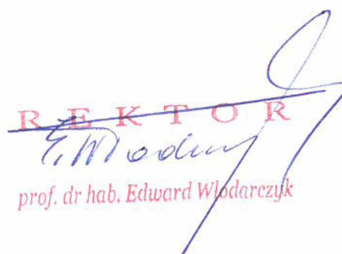 REKTOR
E. Włod
prof. dr hab. Edward Włodarczyk